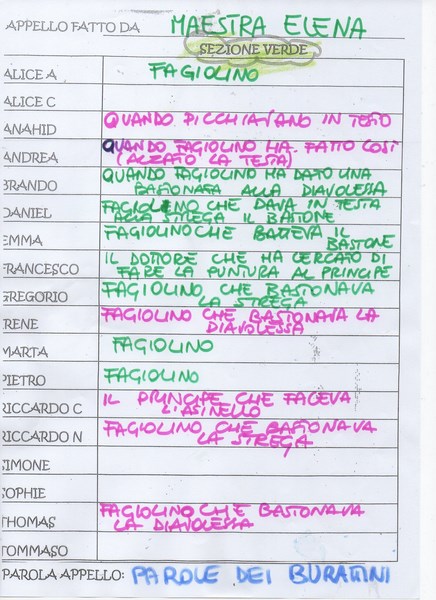 APPELLO FATTO DA MAESTRA ELENA
SEZIONE VERDE
ALICE A FAGIOLINO
ALICE C
ANAHID QUANDO PICCHIAVANO IN TESTO
ANDREA QUANDO FAGIOLINO HA FATTO COSÌ
(ALZATO LA TESTA)
BRANDO QUANDO FAGIOLINO HA DATO UNA
BASTONATA ALLA DIAVOLESSA
DANIEL FAGIOLINO CHE DAVA IN TESTA
ALLA STREGA IL BASTONE
EMMA FAGIOLINO CHE BATTEVA IL
BASTONE
FRANCESCO IL DOTTORE CHE HA CERCATO DI
FARE LA PUNTURA AL PRINCIPE
GREGORIO FAGIOLINO CHE BASTONAVA
LA STREGA
IRENE FAGIOLINO CHE BASTONAVA LA
DIAVOLESSA
MARTA FAGIOLINO
PIETRO FAGIOLINO
RICCARDO C IL PRINCIPE CHE FACEVA
L'ASINELLO
RICCARDO N FAGIOLINO CHE BASTONAVA
LA STREGA
SIMONE
SOPHIE
THOMAS FAGIOLINO CHE BASTONAVA
LA DIAVOLESSA
TOMMASO
PAROLA APPELLO: PAROLE DEI BURATTINI